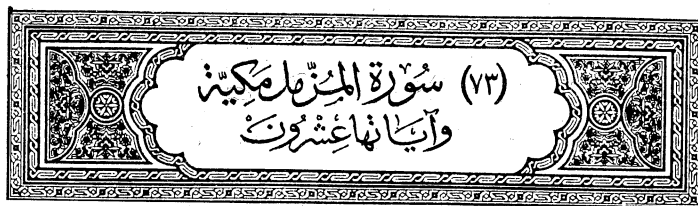 (٧٣) سُورَة المُزَّمِّل مَكِيَّة
وَآيَاتهَا عِشْرُونَ